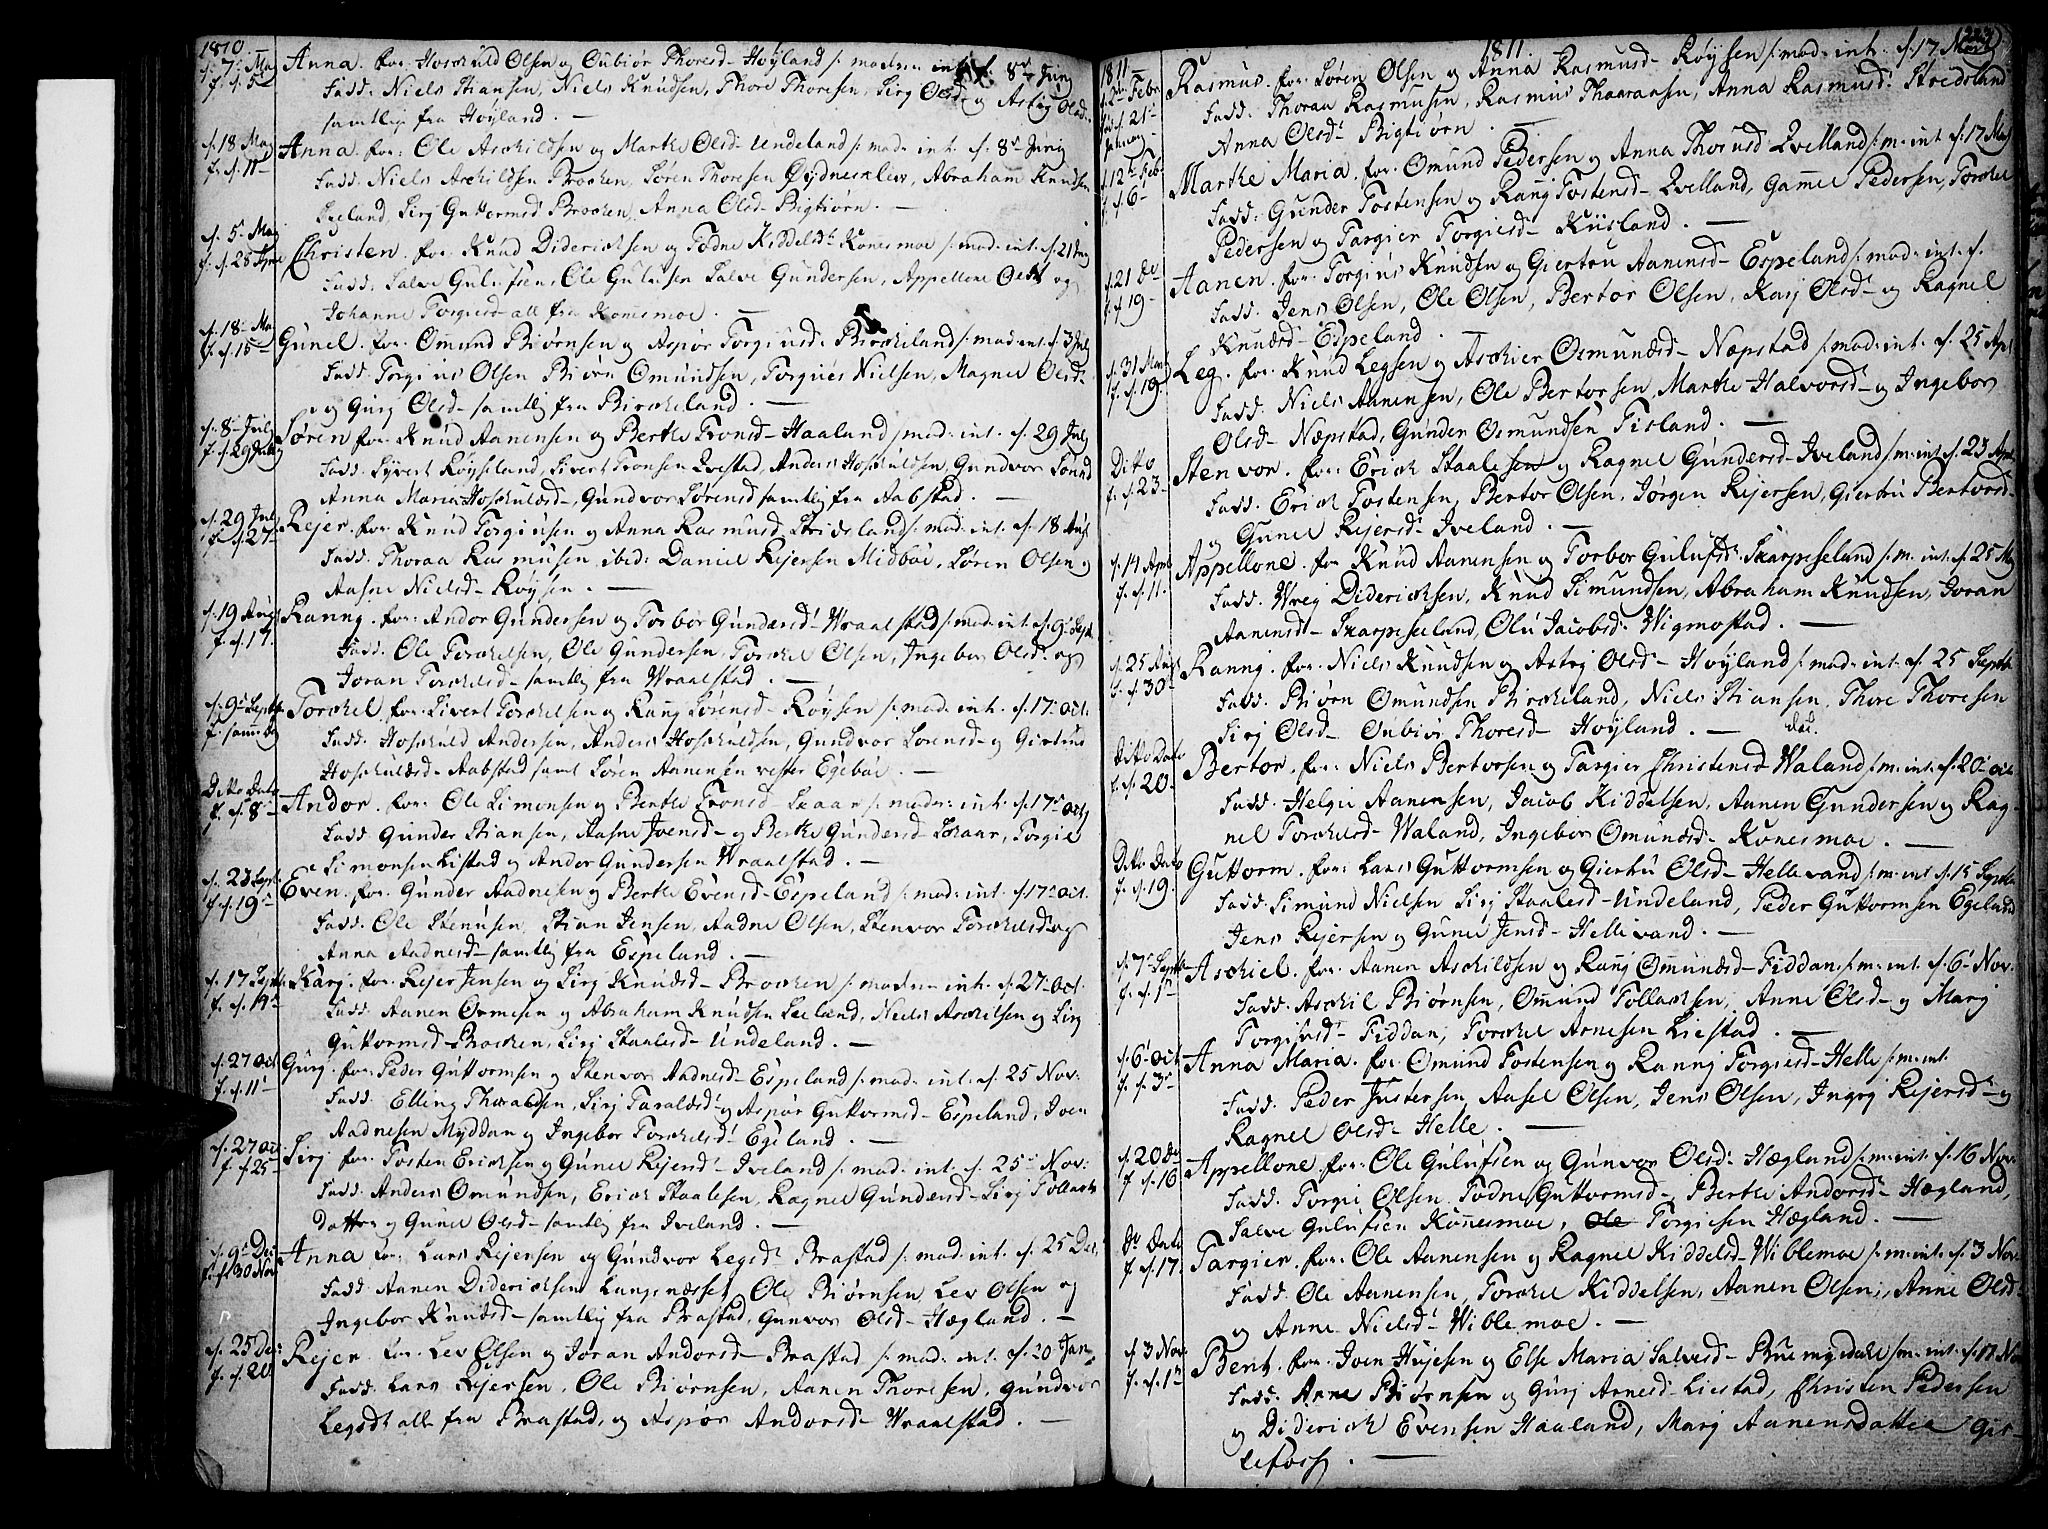 1810.
d. 7 Maj Anna. for: Hoskuld Olsen og Oubiør Thoresd- Høyland /: mod: int. d. 8de Junij
f. d. 5te Fadd. Niels Stiansen, Niels Knudsen, Thore Thoresen, Sirj Olsd- og Astrig Olsd-
samtlig fra Høyland. —
d. 18 Maj Anna. for: Ole Aschildsen og Marthe Olsd- Undeland /: mod: int. d. 8de Junij
f. d. 11- Fadd. Niels Aschildsen Brochen, Søren Thoresen Øydneskleiv, Abraham Knudsen
Sirj Guttormsd- Brochen, Anna Olsd- Bigtiørn. —
d. 5 Maj Christen. for. Knud Diderichsen og Todne Kiddelsd- Konesmoe /: mod: int. d. 21 Junij
f. d. 28 April Fadd. Salve Gulufsen, Ole Gulufsen Salve Gundersen, Appellone Olsd- og
Johanne Torgiesd- all fra Konesmoe. —
d. 18- Maj Gunel. for. Omund Biørnsen og Aspør Torgiusd- Birkeland /: mod: int. d. 3 Julj
f. d. 15- Fadd. Torgius Olsen Biørn Omundsen, Torgiues Nielsen, Magnel Olsd-
og Gurj Olsd- samtlig fra Birkeland. —
d. 8- Julj Søren for. Knud Aanensen og Berthe Tronsd- Haaland /: mod: int. d. 29 Julj
Fadd. Syvert Røyseland, Sivert Tronsen Qvestad, Anders Hoskuldsen, Gundvor
Anna Maria Hoskuldsd-, Gundvor Sørensd- samtlig fra Aabstad. —
d. 29 Julj Rejer. for. Knud Torgiusen og Anna Rasmusd. Stridsland /: mod: int. d. 18 Aug
f. d. 27- Fadd. Thoraa Rasmusen ibid: Daniel Rejersen Midboe, Søren Olsen og
Aasne Nielsd- Røysen. —
d. 19 Aug Ranng. for: Andor Gundersen og Torbor Gundersd- Wraalstad /: mod: int. d. 9- Sept
f. d. 17. Fadd: Ole Torchelsen, Ole Gundersen, Torchel Olsen, Ingebor Olsd- og
Joran Torchelsd- samtlig fra Wraalstad. —
d. 9- Septb Torchel. for. Sivert Torchelsen og Rang Sørensd- Røysen /: mod: int. d. 17- Oct.
f. samme dag Fadd. Hoskuld Andersen, Anders Hoskuldsen, Gundvor Sørensd- og Giertrud
Hoskuldsd- Aabstad samt Søren Aanensen vester Egeboe. —
Ditto Dato Andor. for: Ole Simonsen og Berthe Tronsd- Skaar /: mod: int. d. 17- Oct
f. d. 8- Fadd Gunder Stiansen, Aasne Ivensd- og Berthe Gundersd Skaar, Torgie
Simonsen Listad og Andor Gundersen Wraalstad. —
d. 23 Sept Even. for. Gunder Aadnesen og Berthe Evensd- Espeland /: mod: int. d. 17- Oct.
f. d. 19- Fadd. Ole Stenusen, Stian Jensen, Aadne Olsen, Stenvor Torchelsd- og
Anna Aadnesd- samtlig fra Espeland. —
d. 17 Septb. Karj. for. Rejer Jensen og Sirj Knudsd- Brochen /: mod: int. d. 27- Oct.
f. d. 14- Fadd. Aanen Ormesen og Abraham Knudsen, Niels Aschilsen og Sirj
Guttormsd- Brochen, Sirj Staalesd- Undeland. —
d. 27 Oct Gurj. for. Peder Guttormsen og Stenvor Aadnesd- Espeland /: mod: int. d. 25 Nov:
f. d. 11- Fadd. Elling Tharaldsen, Sirj Taraldsd- og Aspør Guttormsd- Espeland, Iven
Aadnesen Myddan og Ingebor Torchelsd- Egeland. —
d. 27 Oct Sirj. for. Tosten Erichsen og Gunel Rejersd- Iveland /: mod: int. d. 25- Nov:
f. d. 25- Fadd. Anders Omundsen, Erich Staalesen, Ragnel Gundersd- Sirj Tollachs
datter og Gunel Olsd- samtlig fra Iveland. —
d. 9- Dec Anna for. Lars Rejersen og Gundvor Legsd- Brastad /: mod: int. d. 25 Dec.
f. d. 30 Nov Fadd. Aanen Diderichsen Langenesset, Ole Biørnsen, Lev Olsen og
Ingebor Knudsd- samtlig fra Brastad, Gunvor Olsd- Hægland. —
d. 25 Dec: Rejer for. Lev Olsen og Joran Andorsd- Brastad /: mod: int. d. 20 Jan-
f. d. 20 Fadd. Lars Rejersen, Ole Biørnsen, Aanen Thoresen, Gundvor
Legsd- alle fra Brastad, og Aspør Andorsd- Wraalstad. —
1811.
1811- Rasmus. for: Søren Olsen og Anna Rasmusd- Røysen /: mod: int. d. 17 Martj
d. 2- Febr Fadd. Thoraa Rasmusen, Rasmus Thoraasen, Anna Rasmusd- Stridsland
Anna Olsd- Bigtiørn. —
d. 12- Feb Marthe Maria. for. Omund Pedersen og Anna Thorusd- Qvelland /: m: int. d. 17 Maj
f. d. 6- Fadd: Gunder Tostensen og Rang Tostensd- Qvelland, Gamel Pedersen, Torchel
Pedersen og Targier Torgiesd- Kiisland. —
d. 21 do Aanen. for: Torgius Knudsen og Giertru Aanensd- Espeland /: mod: int. d.
f. d. 19- Fadd. Jens Olsen, Ole Olsen, Bertor Olsen, Karj Olsd- og Ragnel
Knudsd- Espeland. —
d. 31 Mar Leg. for. Knud Legsen og Aschier Osmundsd- Næpstad /: mod: int. d. 25 Apl
f. d. 19. Fadd. Niels Aanensen, Ole Bertorsen, Marthe Halvorsd- og Ingebor
Olsd- Næpstad, Gunder Osmundsen Tisland. —
Ditto Stenvor. for: Erich Staalesen og Ragnel Gundersd- Iveland /: m: int. d. 23 Apl
f. d. 23- Fadd. Erich Tostensen, Bertor Olsen, Jørgen Rejersen, Giertru Bertorsd-
og Gunel Rejersd- Iveland. —
d. 14 Apr Appellone. for Knud Aanensen og Torbor Gulufsd- Skarpeseland /: m: int. d. 25 Maj
f. d. 11. Fadd. Wrej Diderichsen, Knud Simundsen, Abraham Knudsen, Joran
Aanensd- Skarpeseland, Olu Jacobsd- Wigmostad. —
d. 25 Aug Rannj. for. Niels Knudsen og Astrj Olsd- Høyland /: mod: int. d. 25 Septb
f. d. 30- Fadd. Biørn Omundsen Birkeland, Niels Stiansen, Thore Thoresen
Sirj Olsd- Oubiør Thoresd- Høyland. —
Ditto Dato Bertor. for. Niels Bertorsen og Targier Christensd- Waland /: m: int. d. 20- Oct
f. d. 20- Fadd. Helgie Aanensen, Jacob Kiddelsen, Aanen Gundersen og Rag-
nel Torchelsd- Waland, Ingebor Omundsd- Konesmoe. —
Ditto Dato Guttorm. for. Lars Guttormsen og Giertru Olsd- Hellevand /: m: int d. 15 Septb
f. d. 19. Fadd. Simund Nielsen Sirj Staalesd- Undeland, Peder Guttormsen Egeland
Jens Rejersen og Gunel Jensd- Hellevand. —
d. 7- Septb Aschiel. for. Aanen Aschildsen og Rang Omundsd- Fiddan. /: m: int. d. 6- Nov.
f. d. 1- Fadd. Aschil Biørnsen, Omund Tollachsen, Anne Olsd- og Marj
Torgiusd- Fiddan, Torchel Arnesen Liestad. —
d. 6- Oct Anna Maria. for Omund Tostensen og Rannj Torgiesd- Helle /: m: int
f. d. 3- Fadd. Peder Justersen, Aasel Olsen, Jens Olsen, Ingrj Rejersd- og
Ragnel Olsd- Helle. —
d. 20 do Appellone. for: Ole Gulufsen og Gunvor Olsd- Hægland /: m: int. d. 16 Nov.
f. d. 16 Fadd. Torgie Olsen, Todne Guttormsd- Berthe Andorsd- Hægland,
Salve Gulufsen Konnesmoe, Ole Torgiesen Hægland. —
Do Dato Targier. for: Ole Aanensen og Ragnel Kiddelsd- Wiblemoe /: m: int. d. 3 Nov
f. d. 17. Fadd. Ole Aanensen, Torchel Kiddelsen, Aanen Olsen, Anne Olsd-
og Anne Nielsd- Wiblemoe. —
d. 3 Nov Bent. for. Iven Hujesen og Else Maria Salvesd- Buemyrdahl /: m: int. d. 17 Nov
f. d. 1- Fadd. Arne Biørnsen og Gurj Arnesd- Liestad, Christen Pedersen
og Diderich Evensen Haaland, Marj Aanensdatter Gis-
lefoss. —